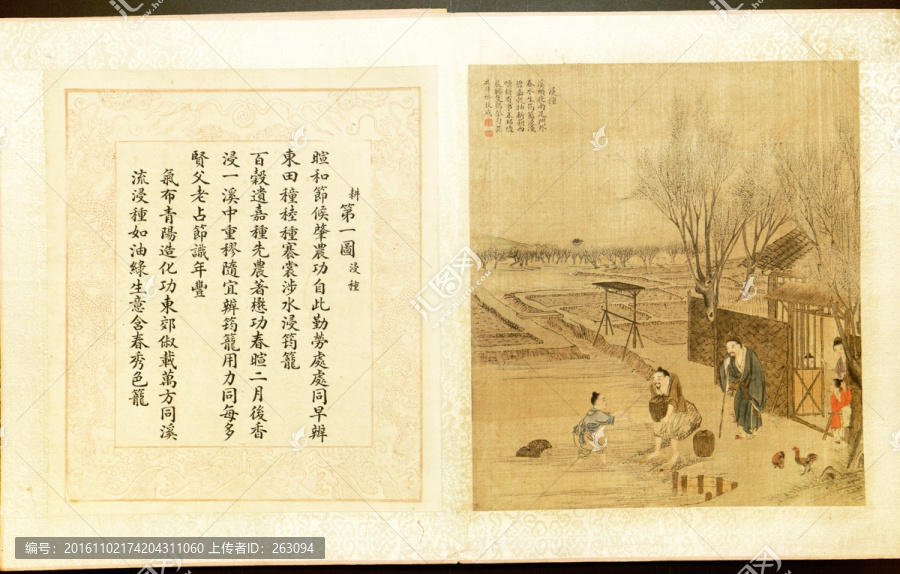 耕第一圖浸種
暄和節候肇農功自此勤勞處處同早辦
東田穜稑種褰裳涉水浸筠籠
百穀遺嘉種先農著懋功春暄二月後香
浸一溪中重穋隨宜辦筠籠用力同每多
賢父老占節識年豐
氣布青陽造化功東郊俶載萬方同溪
流浸種如油綠生意含春秀色籠
浸種
汇图网
编号：20161102174204311060 上传者ID：263094